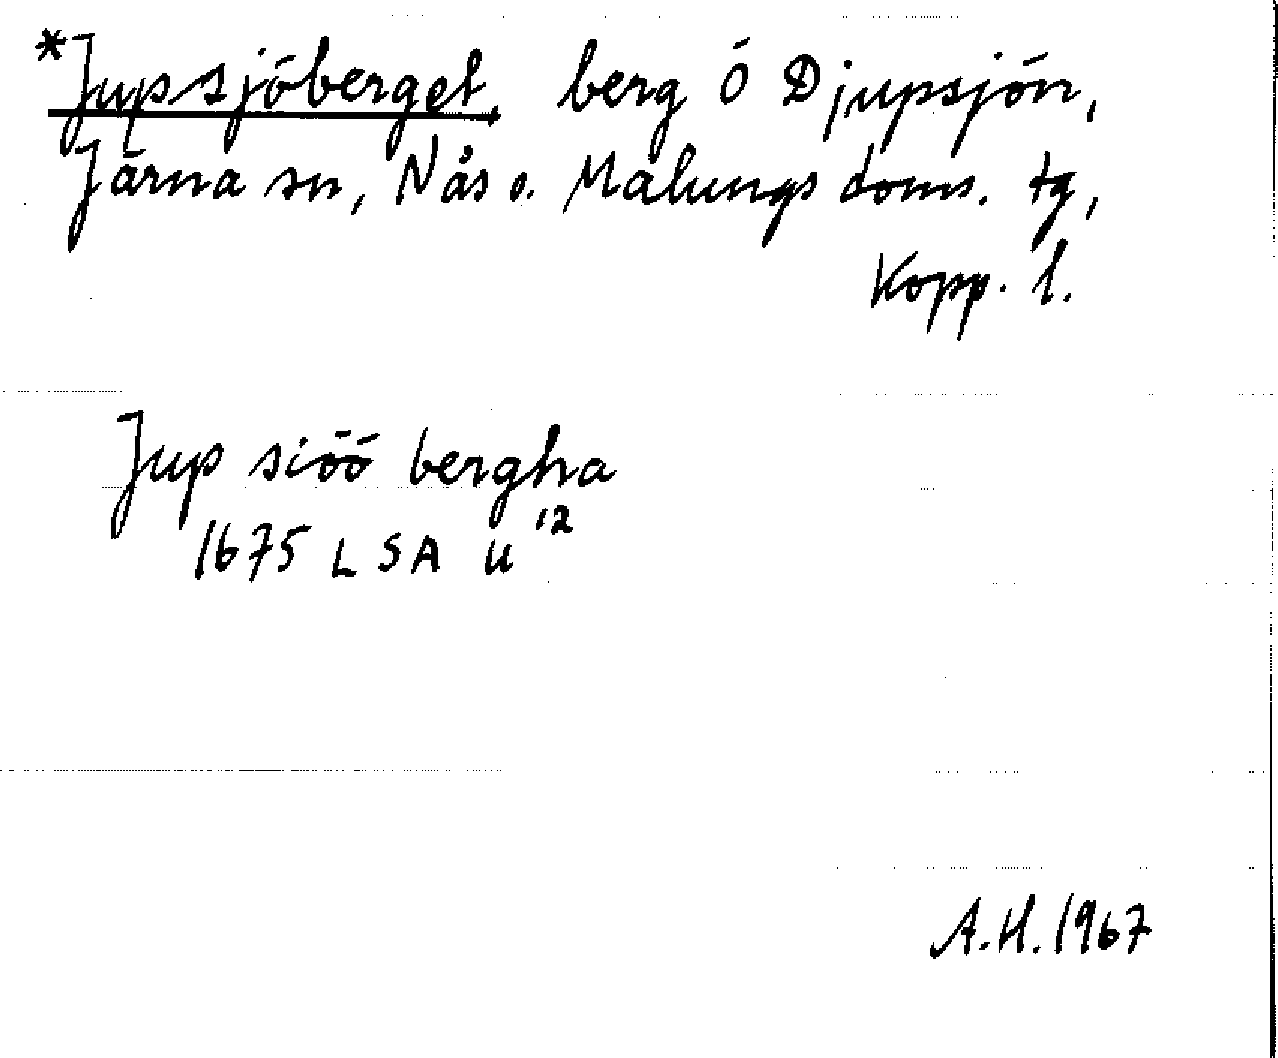 *Jupsjöberget, berg Ö Djupsjön,
Järna sn, Nås o. Malungs doms. tg,
Kopp. l.
Jup siöö bergha
1675 LSA U 12
A.H. 1967